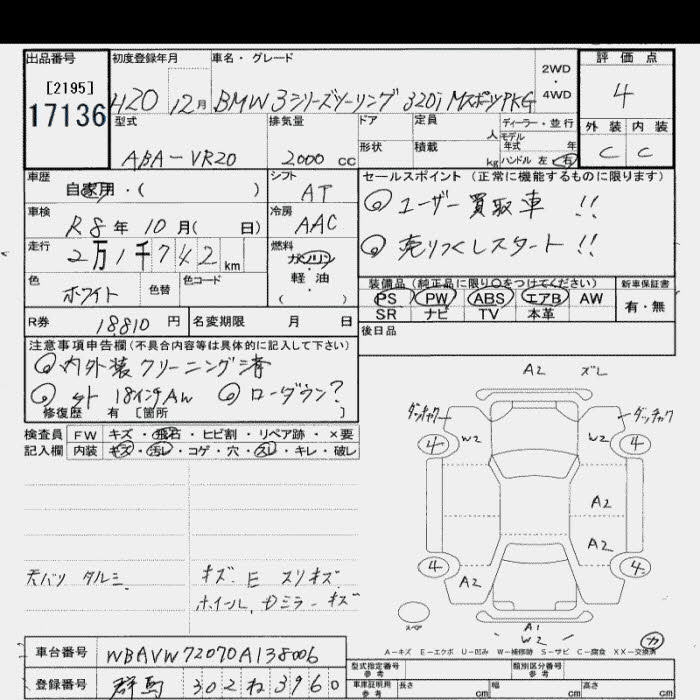 出品番号 初度登録年月 車名・グレード 評価点
[2195]
17136
H20 12月 BMW 3シリーズツーリング 320i MスポーツPKG
2WD・4WD
4
型式 排気量 ドア 定員 ディーラー・並行
外装 内装
人 モデル年式 年
ABA-VR20 2000cc 形状 積載 kg ハンドル 左・右
C C
車歴 シフト セールスポイント(正常に機能するものに限ります)
自家用・( ) AT
◎ユーザー買取車 !!
車検 冷房
R8年10月( 日) AAC
◎売りつくしスタート !!
走行 燃料
2万1千742km ガソリン
軽・油
( )
色 色替 色コード
ホワイト
装備品(純正品に限り○をつけてください) 新車保証書
PS PW ABS エアB AW 有・無
SR ナビ TV 本革
R券 18810円 名変期限 月 日
後日品
注意事項申告欄(不具合内容等は具体的に記入して下さい)
◎内外装クリーニング済
◎外18インチAW ◎ローダウン?
修復歴 有 [箇所 ]
検査員 FW キズ・飛石・ヒビ割・リペア跡・×要
記入欄 内装 キズ・汚レ・コゲ・穴・スレ・キレ・破レ
A2 ズレ
ダンチャク ダッチャク
4 W2 W2 4
A2
A2
4 A2 4
天バリ タルミ
キズ E スリキズ
ホイール、Dミラーキズ
スペア
A1
W2
カ
A-キズ E-エクボ U-凹み W-補修跡 S-サビ C-腐食 XX-交換済
車台番号 WBAVW72070A138006
型式指定番号 参考 類別区分番号 参考
登録番号 群馬 302 ね 3960
車庫証明用 参考 長さ cm 幅 cm 高さ cm